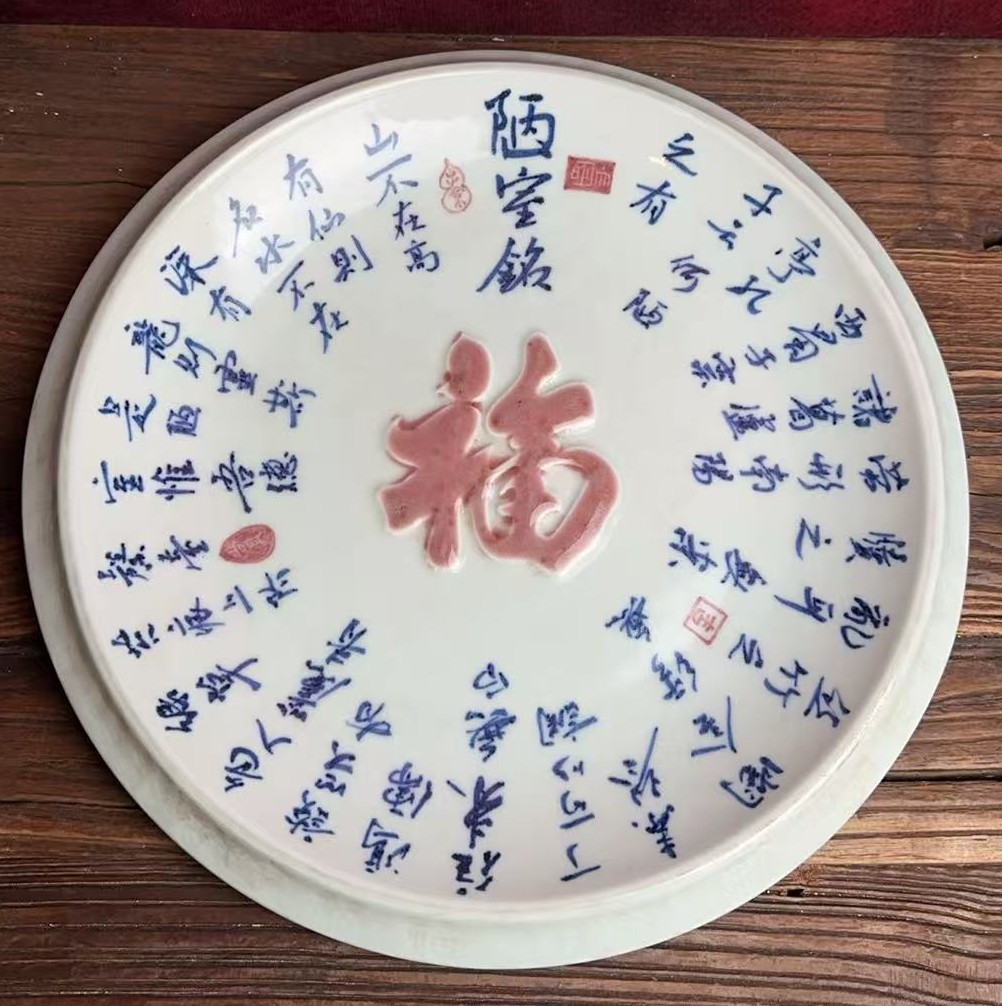 陋室銘
山不在高
有仙則
名水不在
深有
龍則靈斯
是陋
室惟吾德
馨
痕上
綠草
色人簾青
談笑有
鴻儒
往來無白
丁可以調
素琴
閱金經無
絲竹之
亂耳無案
牘之
勞形南陽
諸葛廬
西蜀子雲
亭孔
子云何陋
之有
福